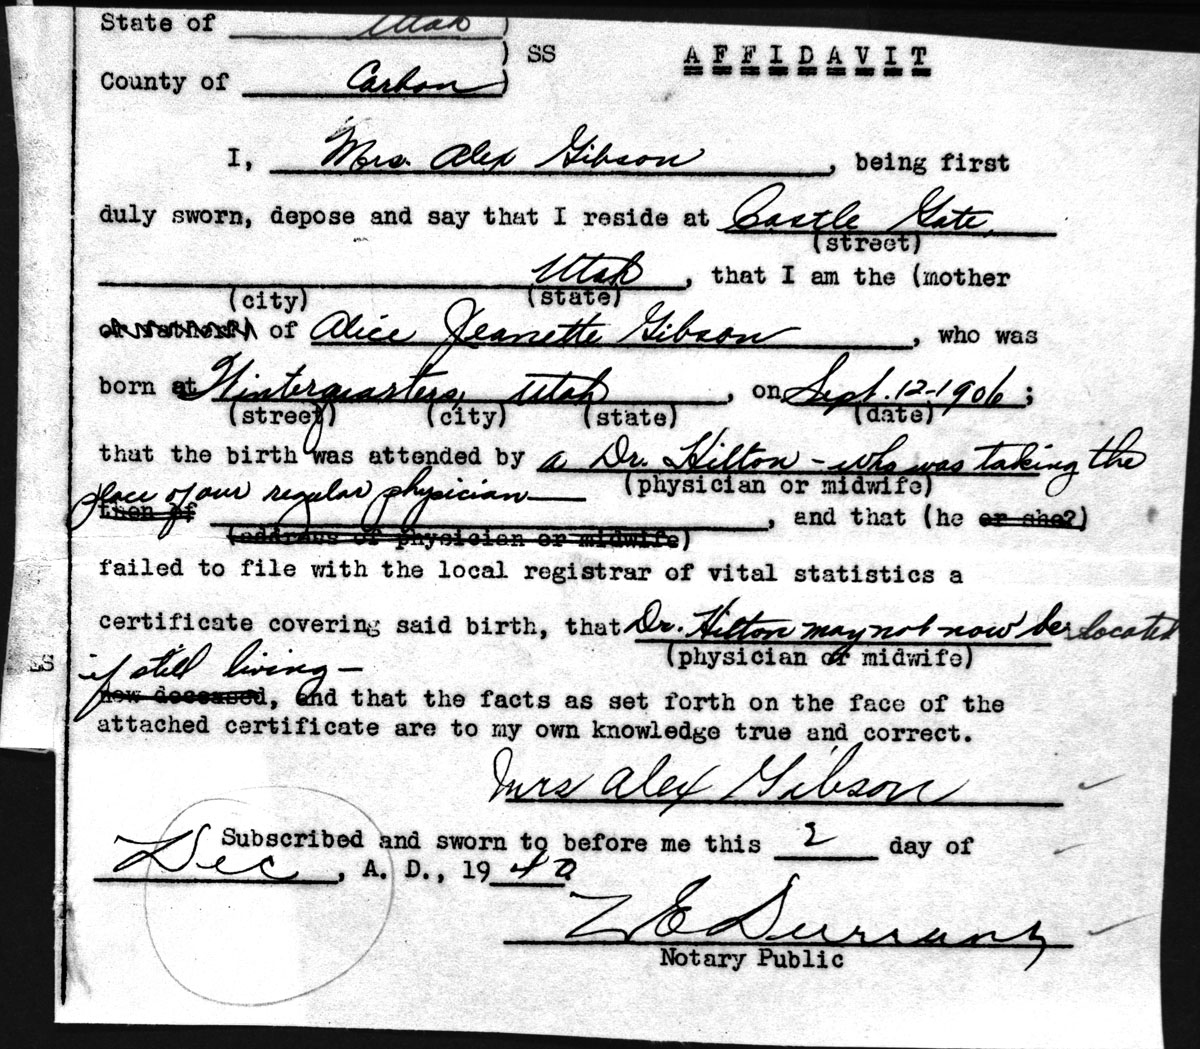 State of Utah )
) SS AFFIDAVIT
County of Carbon )
I, Mrs. Alex Gibson, being first
duly sworn, depose and say that I reside at Castle Gate
(street)
Utah, that I am the (mother
(city) (state)
or father) of Alice Jeanette Gibson, who was
born at Winterquarters, Utah, on Sept. 12-1906;
(street) (city) (state) (date)
that the birth was attended by a Dr. Hilton - who was taking the
(physician or midwife)
place of our regular physician—
then of , and that (he or she?)
(address of physician or midwife)
failed to file with the local registrar of vital statistics a
certificate covering said birth, that Dr. Hilton may not now be located
(physician or midwife)
if still living —
now deceased, and that the facts as set forth on the face of the
attached certificate are to my own knowledge true and correct.
Mrs Alex Gibson
Subscribed and sworn to before me this 2 day of
Dec, A. D., 1940
Notary Public